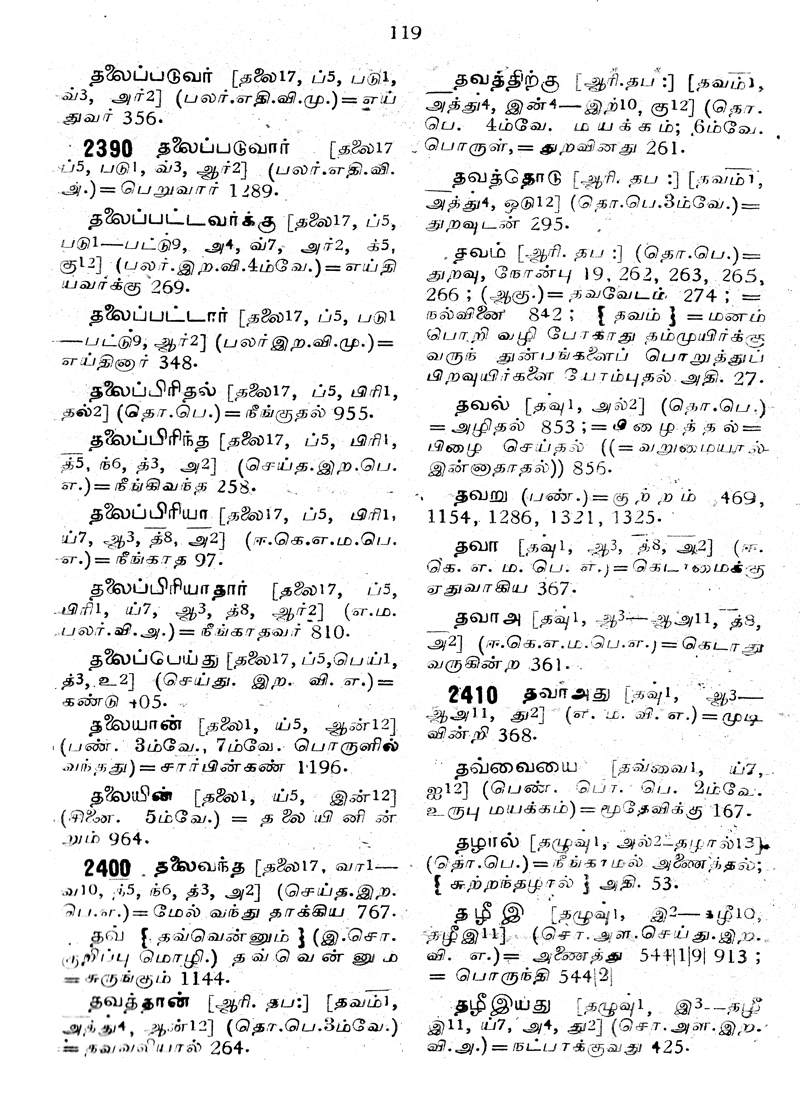 119
தலைப்படுவர் [தலை17, ப்5, படு1,
வ்3, அர்2] (பலர்.எதி.வி.மு.)=எய்
துவர் 356.
2390 தலைப்படுவார் [தலை17
ப்5, படு1, வ்3, ஆர்2] (பலர்.எதி.வி.
அ.)=பெறுவார் 1289.
தலைப்பட்டவர்க்கு [தலை17, ப்5,
படு1—பட்டு9, அ4, வ்7, அர்2, க்5,
கு12] (பலர்.இற.வி.4ம்வே.)=எய்தி
யவர்க்கு 269.
தலைப்பட்டார் [தலை17, ப்5, படு1
—பட்டு9, ஆர்2] (பலர்இற.வி.மு.)=
எய்தினார் 348.
தலைப்பிரிதல் [தலை17, ப்5, பிரி1,
தல்2] (தொ.பெ.)=நீங்குதல் 955.
தலைப்பிரிந்த [தலை17, ப்5, பிரி1,
த்5, ந்6, த்3, அ2] (செய்த.இற.பெ.
எ.)=நீங்கிவந்த 258.
தலைப்பிரியா [தலை17, ப்5, பிரி1,
ய்7, ஆ3, த்8, அ2] (ஈ.கெ.எ.ம.பெ.
எ.)=நீங்காத 97.
தலைப்பிரியாதார் [தலை17, ப்5,
பிரி1, ய்7, ஆ3, த்8, ஆர்2] (எ.ம.
பலர்.வி.அ.)=நீங்காதவர் 810.
தலைப்பெய்து [தலை17, ப்5,பெய்1,
த்3, உ2] (செய்து. இற. வி. எ.)=
கண்டு 405.
தலையான் [தலை1, ய்5, ஆன்12]
(பண். 3ம்வே., 7ம்வே. பொருளில்
வந்தது)=சார்பின்கண் 1196.
தலையின் [தலை1, ய்5, இன்12]
(சினை. 5ம்வே.) = தலையினின்
றும் 964.
2400 தலைவந்த [தலை17, வா1—
வ10, த்5, ந்6, த்3, அ2] (செய்த.இற.
பெ.எ.)=மேல் வந்து தாக்கிய 767.
தவ் { தவ்வென்னும் } (இ.சொ.
குறிப்பு மொழி.) தவ்வென்னும்
=சுருங்கும் 1144.
தவத்தான் [ஆரி. தப:] [தவம்1,
அத்து4, ஆன்12] (தொ.பெ.3ம்வே.)
= தவவலியால் 264.
தவத்திற்கு [ஆரி.தப :] [தவம்1,
அத்து4, இன்4—இற்10, கு12] (தொ.
பெ. 4ம்வே. மயக்கம்; 6ம்வே.
பொருள்,= துறவினது 261.
தவத்தொடு [ஆரி. தப :] [தவம்1,
அத்து4, ஒடு12] (தொ.பெ.3ம்வே.)=
துறவுடன் 295.
தவம் [ஆரி. தப :] (தொ.பெ.)=
துறவு, நோன்பு 19, 262, 263, 265,
266 ; (ஆகு.)= தவவேடம் 274 ; =
நல்வினை 842 ; { தவம் } =மனம்
பொறி வழி போகாது தம்முயிர்க்கு
வருந் துன்பங்களைப் பொறுத்துப்
பிறவுயிர்களை யோம்புதல் அதி. 27.
தவல் [தவு1, அல்2] (தொ.பெ.)
=அழிதல் 853 ;= பிழைத்தல்=
பிழை செய்தல் ((=வறுமையால்
இன்னாதாதல்)) 856.
தவறு (பண்.)=குற்றம் 469,
1154, 1286, 1321, 1325.
தவா [தவு1, ஆ3, த்8, அ2] (ஈ.
கெ. எ. ம. பெ. எ.)=கெடாமைக்கு
ஏதுவாகிய 367.
தவாஅ [தவு1, ஆ3—ஆஅ11, த்8,
அ2] (ஈ.கெ.எ.ம.பெ.எ.)=கெடாது
வருகின்ற 361.
2410 தவாஅது [தவு1, ஆ3—
ஆஅ11, து2] (எ. ம. வி. எ.)=முடி
வின்றி 368.
தவ்வையை [தவ்வை1, ய்7,
ஐ12] (பெண். பொ. பெ. 2ம்வே.
உருபு மயக்கம்)=மூதேவிக்கு 167.
தழால் [தழுவு1, அல்2–தழால்13].
(தொ.பெ.)=நீங்காமல் அணைத்தல்;
{ சுற்றந்தழால் } அதி. 53.
தழீஇ [தழுவு1, இ2—தழீ10,
தழீஇ11] (சொ.அள.செய்து.இற.
வி. எ.)= அணைத்து 544|1|9| 913 ;
= பொருந்தி 544|2|
தழீஇய்து [தழுவு1, இ3--தழீ
இ11, ய்7, அ4, து2] (சொ.அள.இற.
வி.அ.)=நட்பாக்குவது 425.